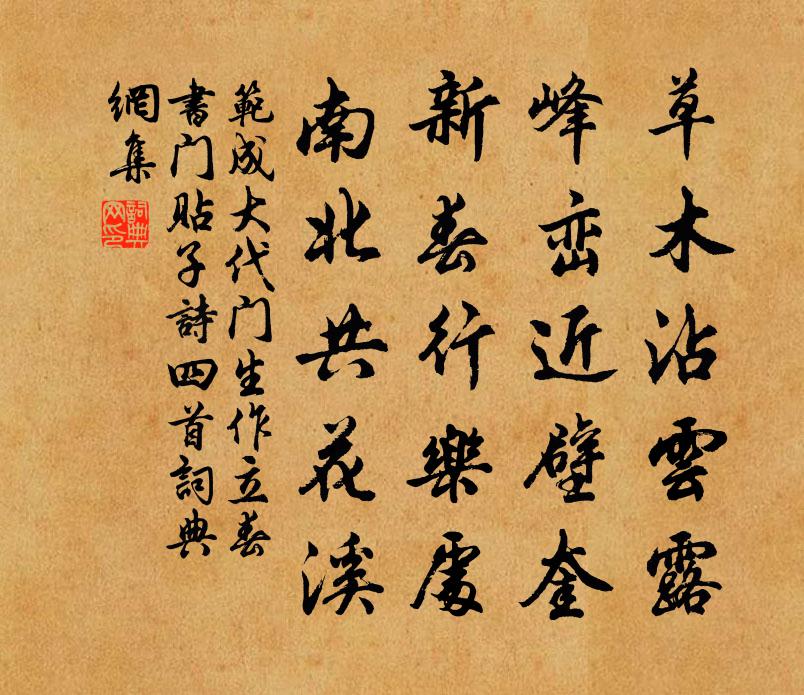 草木沾雲露
峰峦近壁奎
新春行樂處
南北共花溪
範成大代门生作立春
書门貼子詩四首詞典
網集
詞典网印